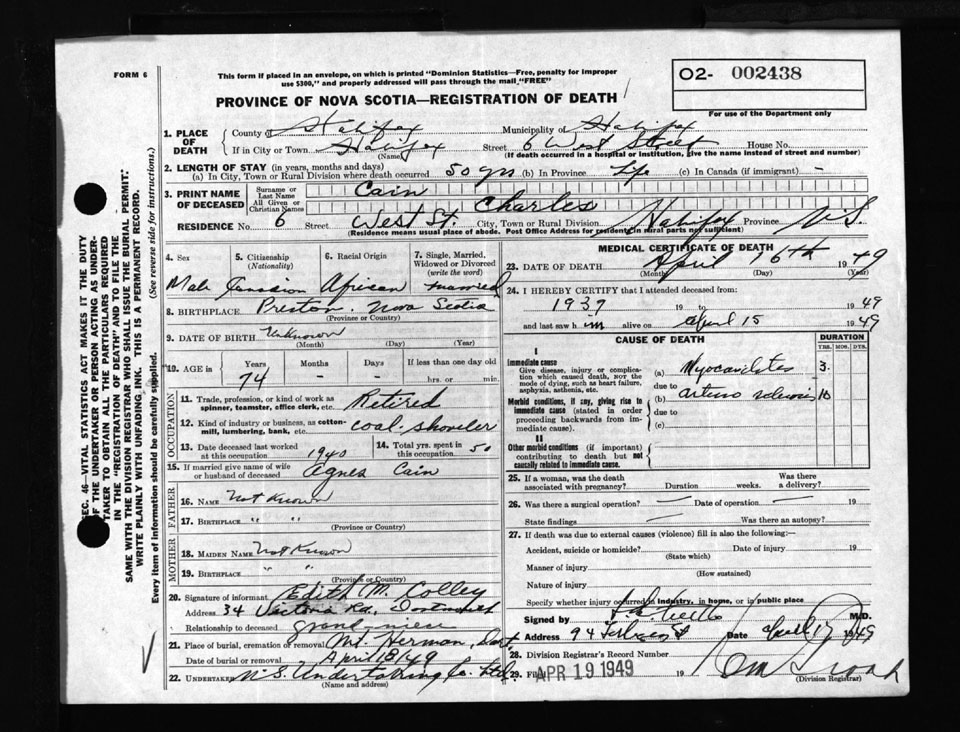 FORM 6
This form if placed in an envelope, on which is printed "Dominion Statistics—Free, penalty for improper
use $300," and properly addressed will pass through the mail "FREE"
PROVINCE OF NOVA SCOTIA—REGISTRATION OF DEATH
O2- 002438
For use of the Department only
1. PLACE OF DEATH { County of Halifax Municipality of Halifax
If in City or Town Halifax (Name) Street 6 West Street House No.
(If death occurred in a hospital or institution, give the name instead of street and number)
2. LENGTH OF STAY (in years, months and days)
(a) In City, Town or Rural Division where death occurred 50 yrs (b) In Province Life (c) In Canada (if immigrant) -
3. PRINT NAME OF DECEASED { Surname or Last Name Cain
All Given or Christian Names Charles
RESIDENCE No. 6 Street West St. City, Town or Rural Division Halifax Province N.S.
(Residence means usual place of abode. Post Office Address for residents in rural parts not sufficient)
4. Sex 5. Citizenship (Nationality) 6. Racial Origin 7. Single, Married, Widowed or Divorced (write the word)
Male Canadian African married
8. BIRTHPLACE Preston. Nova Scotia
(Province or Country)
9. DATE OF BIRTH Unknown
(Month) (Day) (Year)
10. AGE in { Years Months Days If less than one day old
74 - - hrs. or min.
OCCUPATION
11. Trade, profession or kind of work as spinner, teamster, office clerk, etc. Retired
12. Kind of industry or business, as cotton-mill, lumbering, bank, etc. coal shoveler
13. Date deceased last worked at this occupation 1940 14. Total yrs. spent in this occupation 50
15. If married give name of wife or husband of deceased Agnes Cain
FATHER
16. NAME Not Known
17. BIRTHPLACE " "
(Province or Country)
MOTHER
18. MAIDEN NAME Not Known
19. BIRTHPLACE " "
(Province or Country)
20. Signature of informant Edith M. Colley
Address 34 Victoria Rd., Dartmouth
Relationship to deceased grand-niece
21. Place of burial, cremation or removal Mt. Herman, Dart.
Date of burial or removal April 18/49
22. UNDERTAKER N.S. Undertaking Co. Ltd.
(Name and address)
MEDICAL CERTIFICATE OF DEATH
23. DATE OF DEATH April 16th 1949
(Month) (Day) (Year)
24. I HEREBY CERTIFY that I attended deceased from:
1937 19 to 1949
and last saw him alive on April 15 1949
CAUSE OF DEATH
DURATION
YRS. MOS. DYS.
I
Immediate cause
Give disease, injury or complication which caused death, not the mode of dying, such as heart failure, asphyxia, asthenia, etc.
(a) Myocarditis 3
due to
Morbid conditions, if any, giving rise to immediate cause (stated in order proceeding backwards from immediate cause).
(b) arterio sclerosis 10
due to
(c)
II
Other morbid conditions (if important) contributing to death but not causally related to immediate cause.
25. If a woman, was the death associated with pregnancy? Duration weeks. Was there a delivery?
26. Was there a surgical operation? — Date of operation — 19
State findings — Was there an autopsy?
27. If death was due to external causes (violence) fill in also the following:
Accident, suicide or homicide? Date of injury 19
(State which)
Manner of injury
(How sustained)
Nature of injury
Specify whether injury occurred in industry, in home, or in public place
Signed by M.D.
Address 94 Date April 17 1949
28. Division Registrar's Record Number
29. Filed APR 19 1949 19
(Division Registrar)
SEC. 46—VITAL STATISTICS ACT MAKES IT THE DUTY
OF THE UNDERTAKER OR PERSON ACTING AS UNDER-
TAKER TO OBTAIN ALL THE PARTICULARS REQUIRED
IN THE "REGISTRATION OF DEATH" AND TO FILE THE
SAME WITH THE DIVISION REGISTRAR WHO SHALL ISSUE THE BURIAL PERMIT.
WRITE PLAINLY WITH UNFADING INK. THIS IS A PERMANENT RECORD.
Every item of information should be carefully supplied. (See reverse side for instructions.)